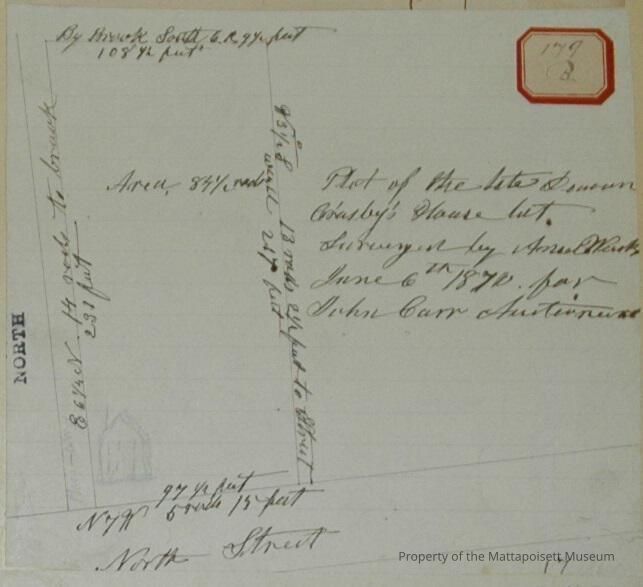 By Brook South 6 R 9½ feet
108½ feet
179
B.
Area, 84½ rods
Plot of the late
Crosby's House lot.
Surveyed by Ansel Weeks
June 6th 1872. for
John Carr Auctioneer
E 6½ N 14 rods to brook
231 feet
W 13 rods 2½ feet to Street
217 feet
NORTH
97½ feet
N 7 W 5 rods 15 feet
North Street
Property of the Mattapoisett Museum